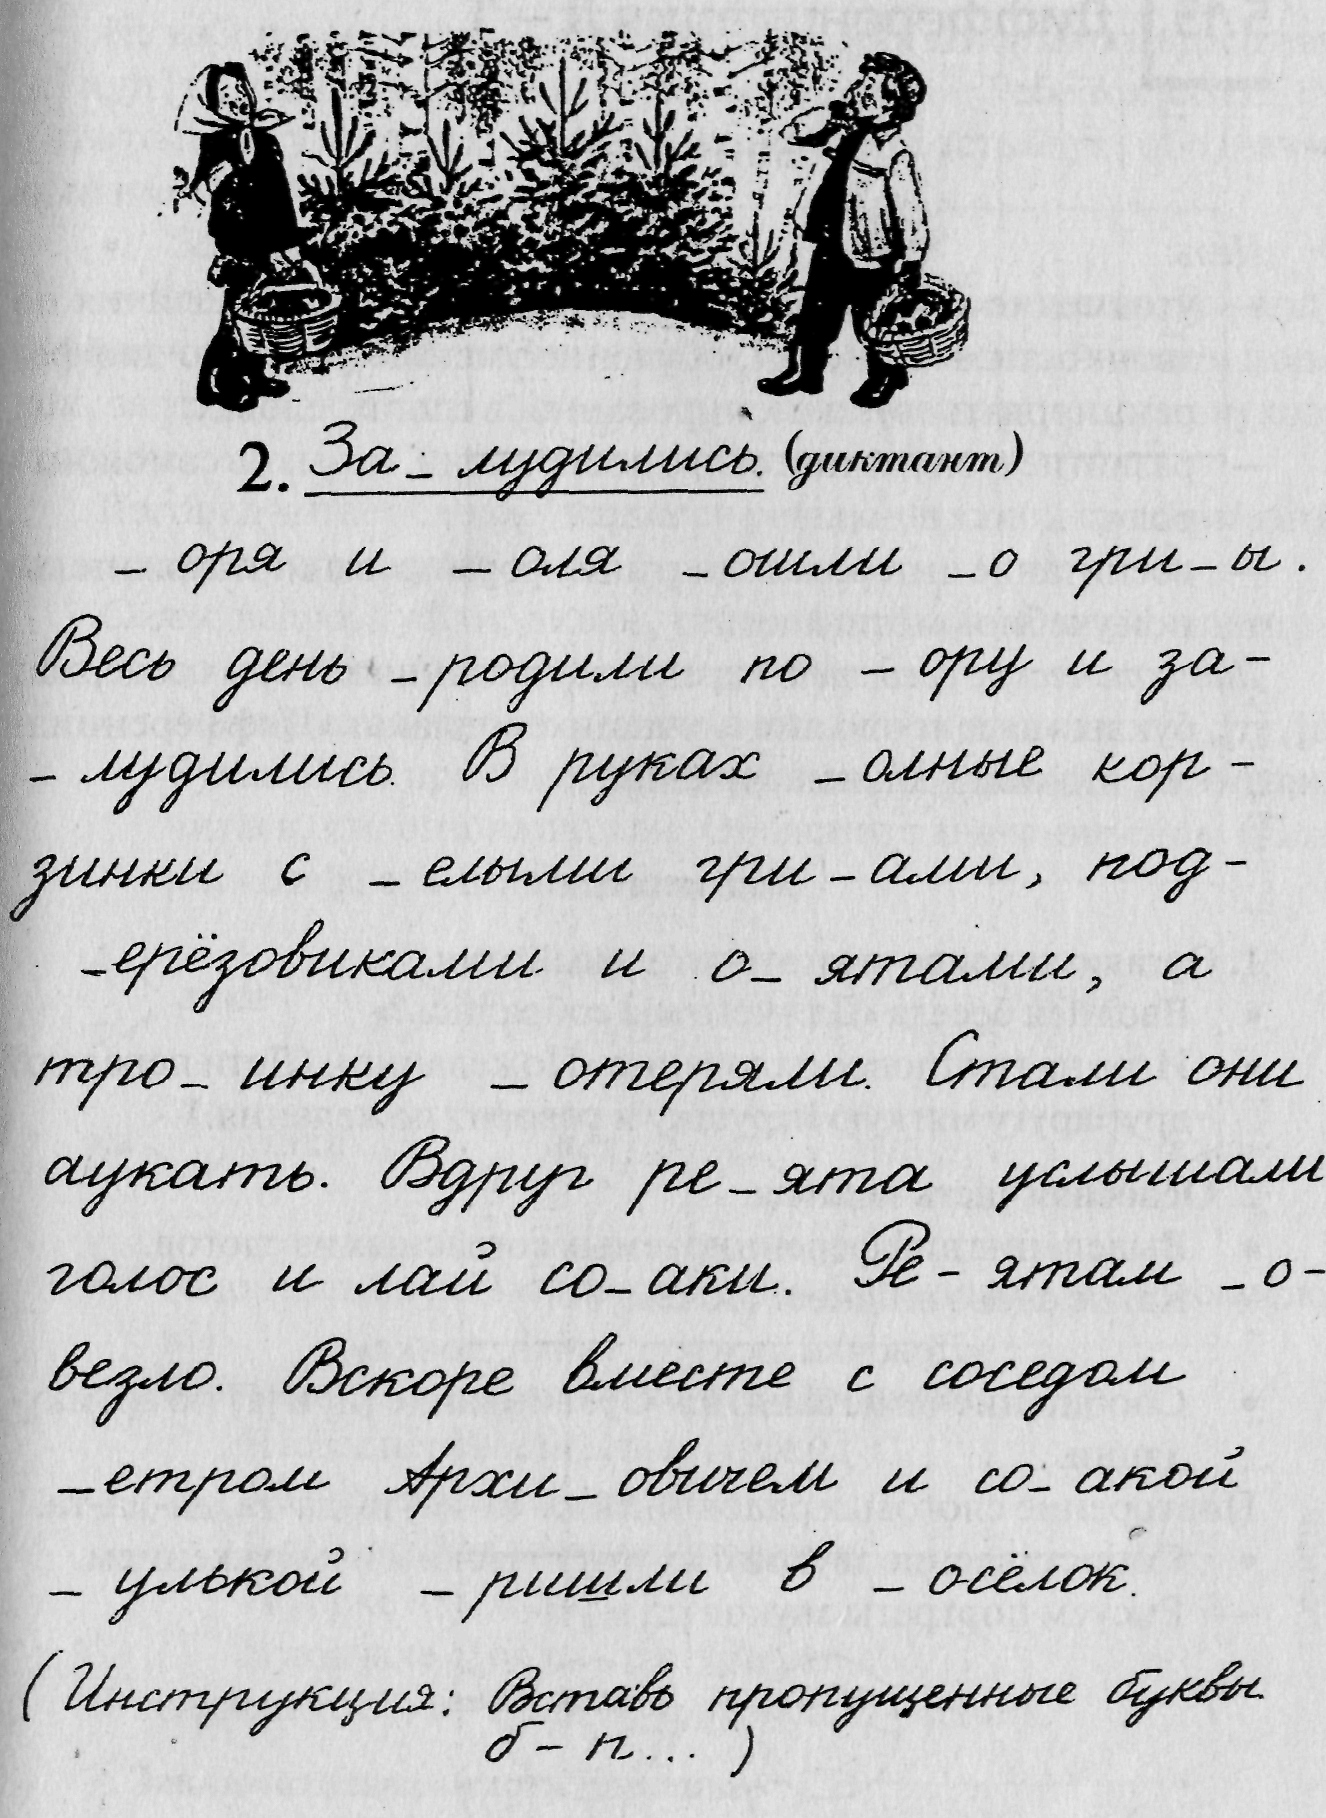 2. За_лудились. (диктант)
_оря и _оля _ошли _о гри_ы.
Весь день _родили по _ору и за-
_лудились. В руках _олные кор-
зинки с _елыми гри_ами, под-
_ерёзовиками и о_ятами, а
тро_инку _отеряли. Стали они
аукать. Вдруг ре_ята услышали
голос и лай со_аки. Ре_ятам _о-
везло. Вскоре вместе с соседом
_етром Архи_овичем и со_акой
_улькой _ришли в _осёлок.
(Инструкция: Вставь пропущенные буквы
б - п...)